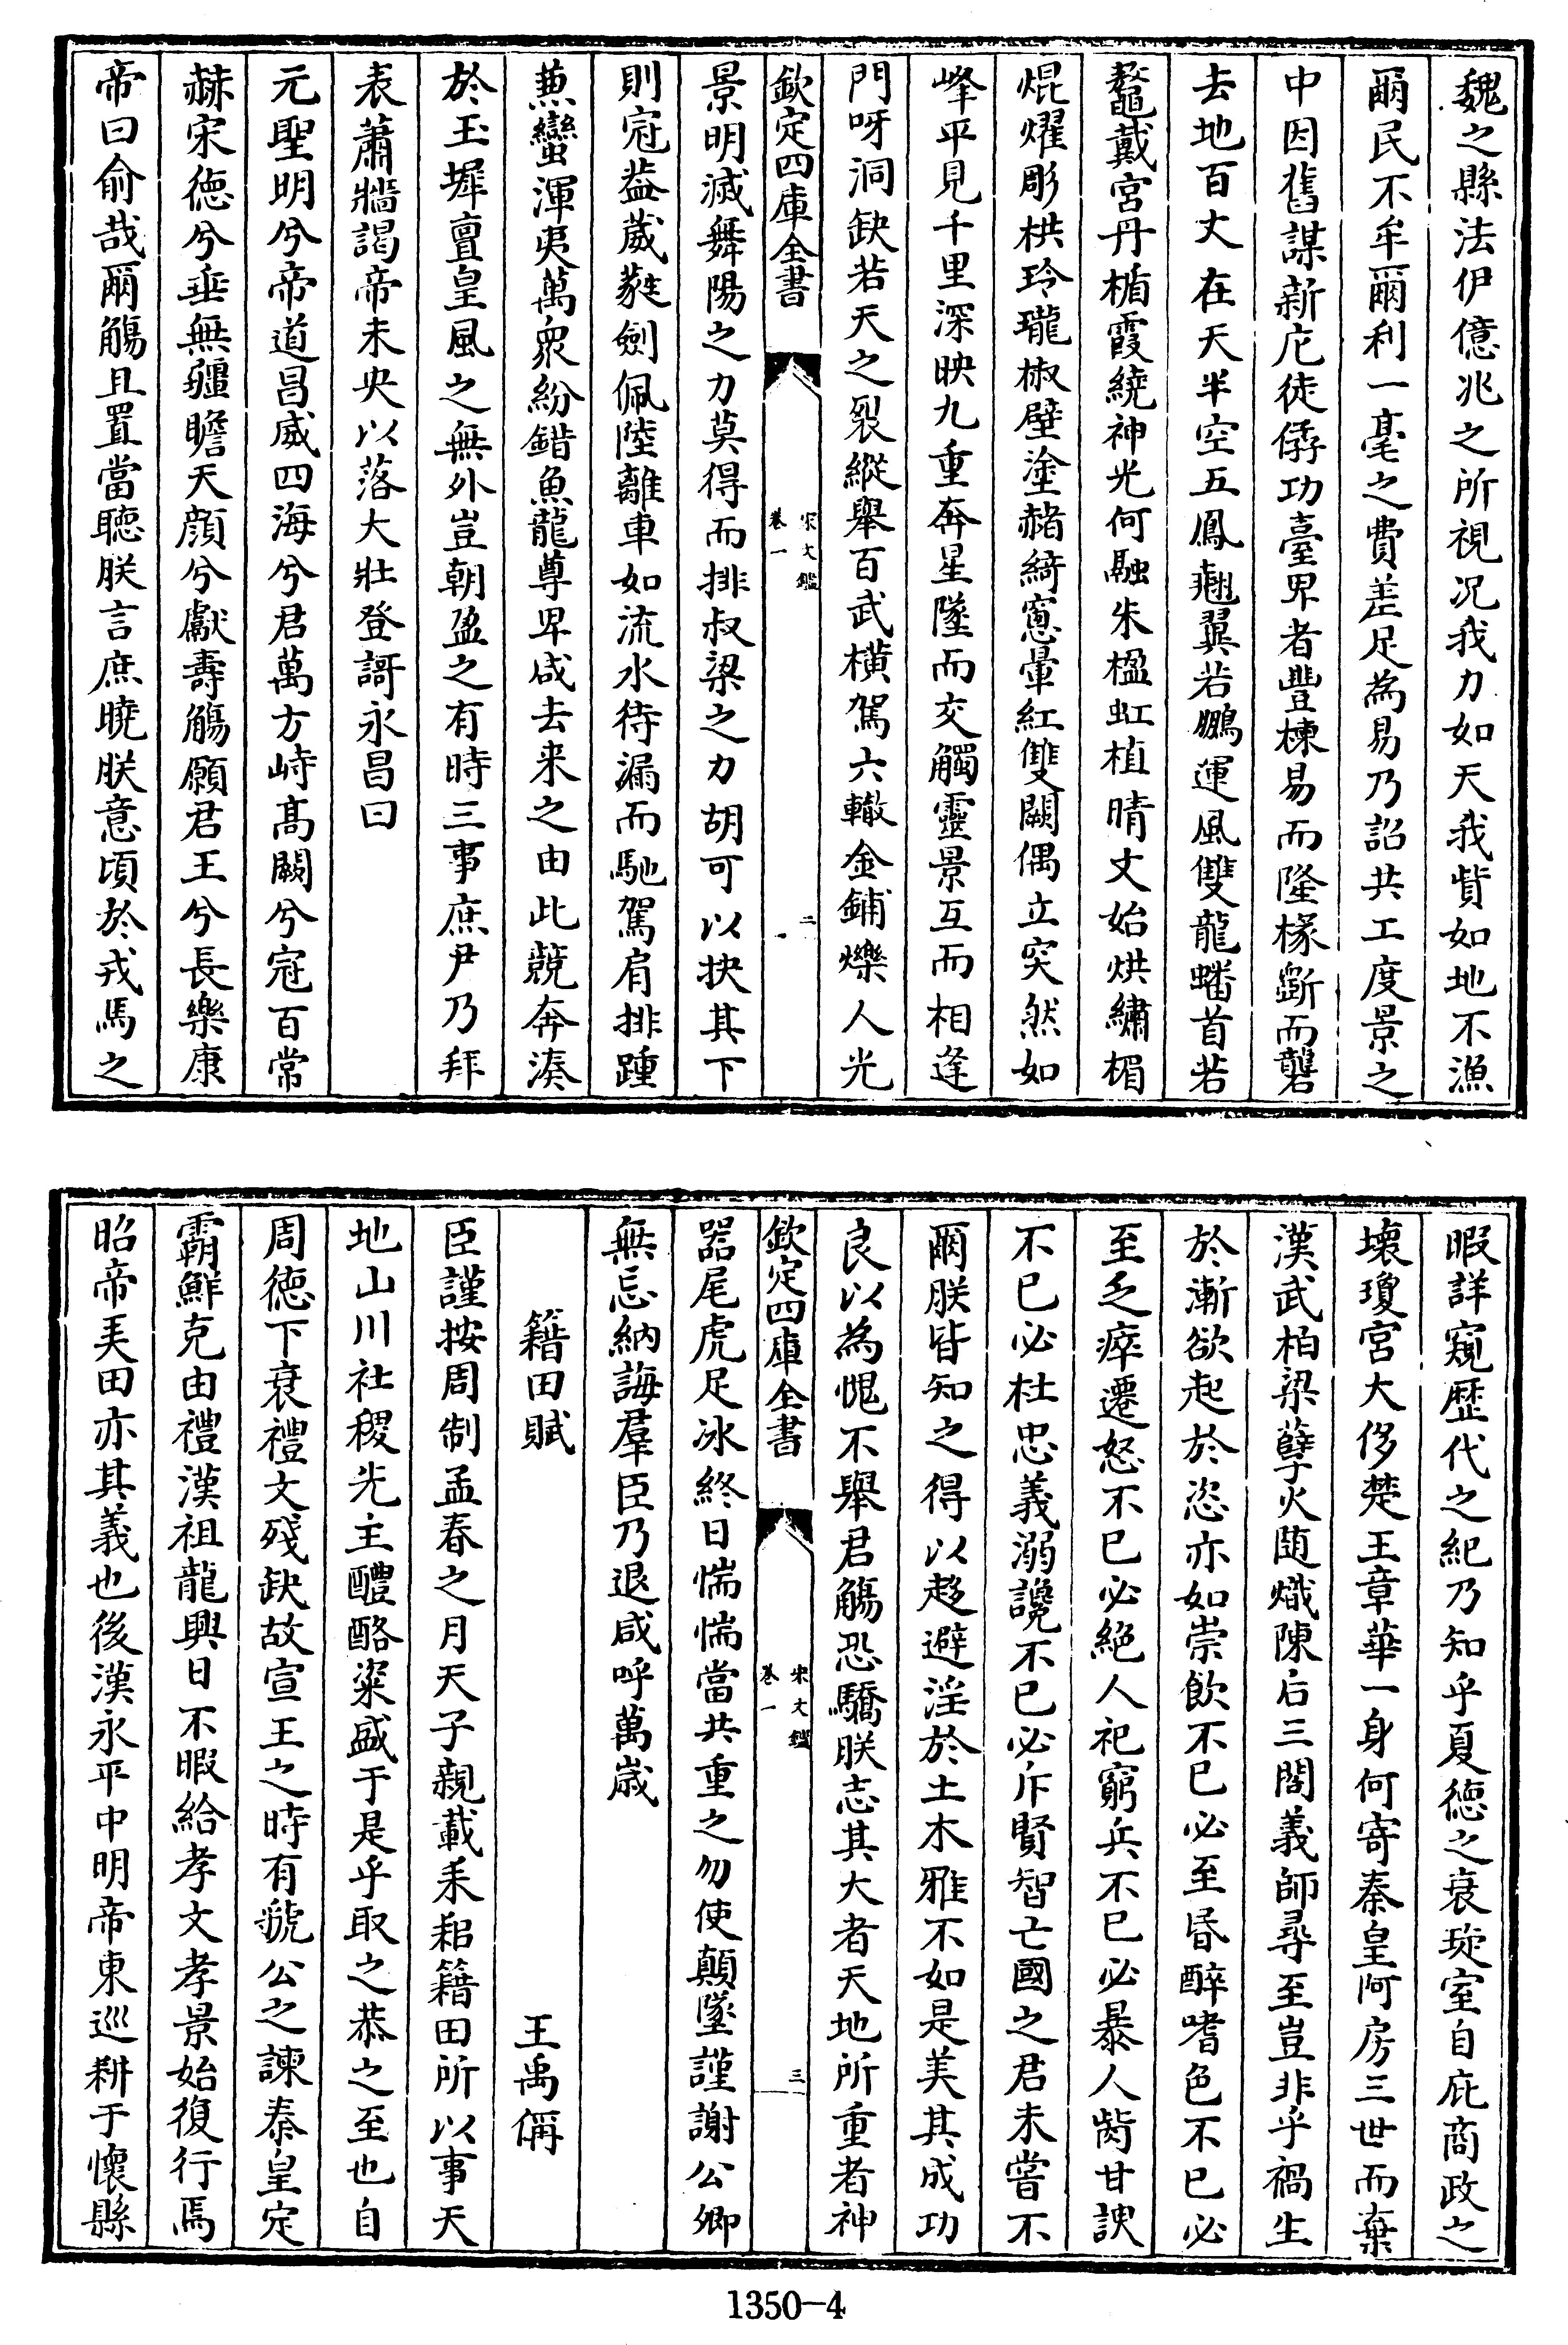 魏之縣法伊億兆之所視况我力如天我貲如地不漁
爾民不牟爾利一毫之費差足為易乃詔共工度景之
中因舊謀新庀徒僝功臺卑者豐棟易而隆椽斵而礱
去地百丈在天半空五鳳翹翼若鵬運風雙龍蟠首若
鼇戴宫丹楯霞繞神光何融朱楹虹植晴丈始烘繡楣
焜燿彫栱玲瓏椒壁塗赭綺窻暈紅雙闕偶立突然如
峰平見千里深映九重奔星墜而交觸靈景互而相逢
門呀洞缺若天之裂縱舉百武横駕六轍金鋪爍人光
欽定四庫全書
宋文鑑
卷一
二
景明滅舞陽之力莫得而排叔梁之力胡可以抉其下
則冠蓋葳蕤劍佩陸離車如流水待漏而馳駕肩排踵
蕉蠻渾夷萬衆紛錯魚龍尊卑咸去来之由此競奔湊
於玉墀亶皇風之無外豈朝盈之有時三事庶尹乃拜
表蕭牆謁帝未央以落大壯登謌永昌曰
元聖明兮帝道昌威四海兮君萬方峙髙闕兮冠百常
赫宋德兮垂無疆瞻天顔兮獻壽觴願君王兮長樂康
帝曰俞哉爾觴且置當聽朕言庶曉朕意頃於戎馬之
暇詳窺歴代之紀乃知乎夏德之衰琁室自庇商政之
壞瓊宫大侈楚王章華一身何寄秦皇阿房三世而棄
漢武柏梁孽火随熾陳后三閣義師尋至豈非乎禍生
於漸欲起於恣亦如崇飲不已必至昏醉嗜色不已必
至乏瘁遷怒不已必絶人祀窮兵不已必暴人胔甘諛
不已必杜忠義溺讒不已必斥賢智亡國之君未嘗不
爾朕皆知之得以趍避淫於土木雅不如是美其成功
良以為愧不舉君觴恐驕朕志其大者天地所重者神
欽定四庫全書
宋文鑑
卷一
三
器尾虎足冰終日惴惴當共重之勿使顛墜謹謝公卿
無忘納誨羣臣乃退咸呼萬嵗
籍田賦
王禹偁
臣謹按周制孟春之月天子親載耒耜籍田所以事天
地山川社稷先主醴酪粢盛于是乎取之恭之至也自
周德下衰禮文殘缺故宣王之時有虢公之諫秦皇定
霸鮮克由禮漢祖龍興日不暇給孝文孝景始復行焉
昭帝弄田亦其義也後漢永平中明帝東巡耕于懷縣
1350-4